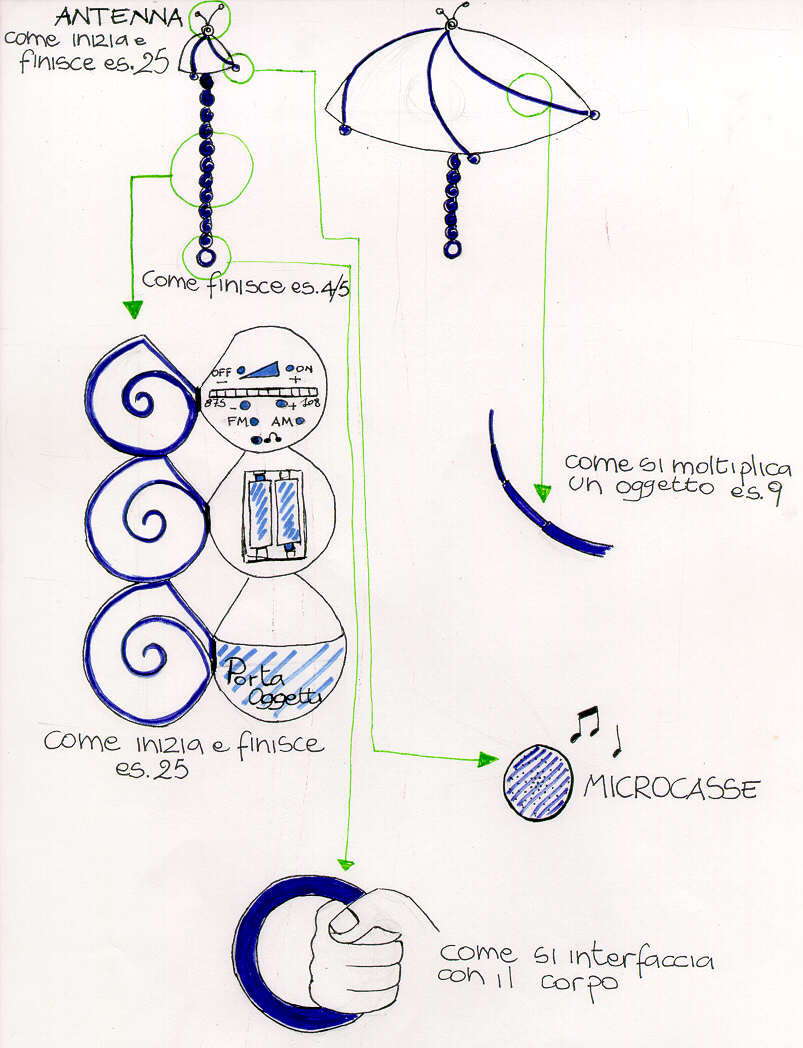 ANTENNA
come inizia e
finisce es.25
Come finisce es.4/5
OFF ON
- +
875 - + 108
FM AM
come si moltiplica
un oggetto es.9
Porta
Oggetti
come inizia e finisce
es.25
MICROCASSE
come si interfaccia
con il corpo